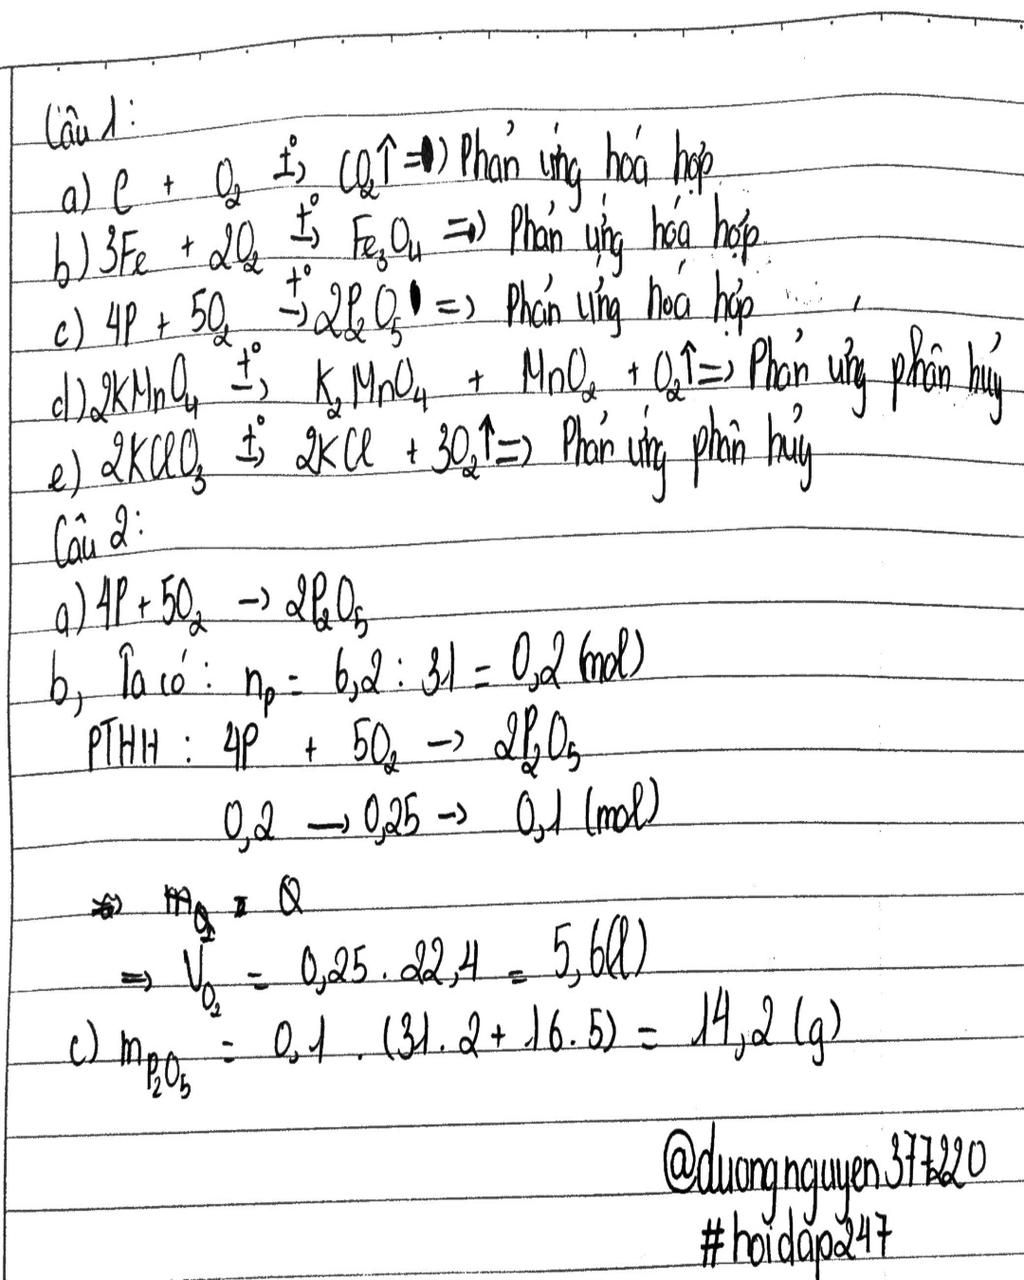 Câu 1:
a) C + O₂ t°→ CO₂↑ => Phản ứng hoá hợp
b) 3Fe + 2O₂ t°→ Fe₃O₄ => Phản ứng hóa hợp
c) 4P + 5O₂ t°→ 2P₂O₅ => Phản ứng hoá hợp
d) 2KMnO₄ t°→ K₂MnO₄ + MnO₂ + O₂↑ => Phản ứng phân hủy
e) 2KClO₃ t°→ 2KCl + 3O₂↑ => Phản ứng phân hủy
Câu 2:
a) 4P + 5O₂ -> 2P₂O₅
b, Ta có: nₚ = 6,2 : 31 = 0,2 (mol)
PTHH : 4P + 5O₂ -> 2P₂O₅
0,2 -> 0,25 -> 0,1 (mol)
=> V O₂ = 0,25 . 22,4 = 5,6(l)
c) m P₂O₅ = 0,1 . (31. 2 + 16. 5) = 14,2 (g)
@duongnguyen377220
#hoidap247